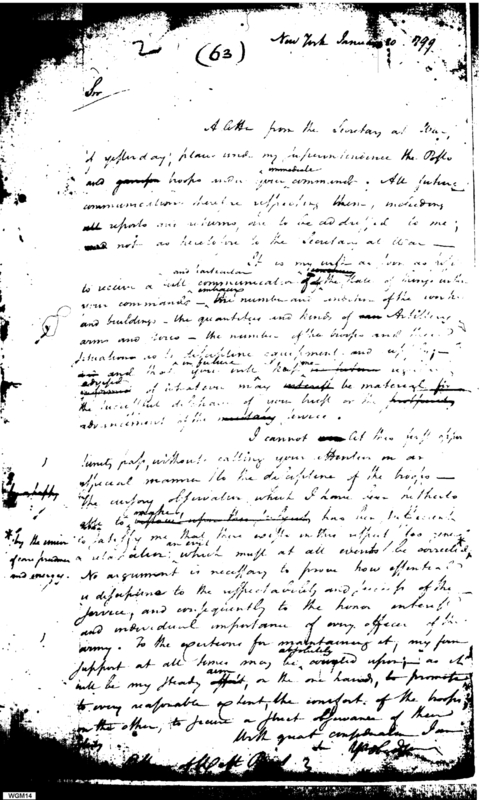 2
(63)
New York January 20 1799
Sir
A letter from the Secretary at War,
of yesterday, places under my superintendence the Posts
immediate
and troops under your command. All future
communications therefore respecting them, including
all reports and returns are to be addressed to me;
and not as heretofore to the Secretary at War —
It is my wish as soon as
and particular
to receive a full communication of the state of things under
your command — the number and condition of the works
and buildings — the quantities and kinds of Artillery
arms and stores — the number of the troops and their
situations as to discipline equipment and
in future me
and that you will keep
advised
of whatever may be material
the successful defence of your trust or the
advancement of the military service.
I cannot let this first oppor
tunity pass, without calling your attention in an
especial manner to the discipline of the troops —
The cursory observation which I have been hitherto
able to make, has been sufficient
to satisfy me that there exists in this respect too general
an evil
a relaxation; which must at all events be corrected
* by the union
of care prudence
and energy.
No argument is necessary to prove how essential
is discipline to the respectability and success of the
service, and consequently to the honor interest
and individual importance of every officer of the
army. To the exertions for maintaining it, my firm
absolutely
support at all times may be relied upon; as it
aim
will be my steady effort, on the one hand, to promote
to every reasonable extent, the comfort of the troops
on the other, to secure a strict observance of their
duty
With great consideration I am
WGM14